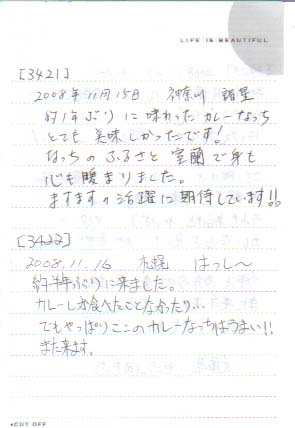 LIFE IS BEAUTIFUL
[3421]
2008年11月15日 神奈川 諸星
約1年ぶりに味わったカレーなっち
とても美味しかったです!
なっちのふるさと室蘭で身も
心も暖まりました。
ますますの活躍に期待しています!!
[3422]
2008.11.16 札幌 はっし〜
約半年ぶりに来ました。
カレーしか食べたことなかったり、、
でもやっぱりここのカレーなっちはうまい!!
また来ます。
◂CUT OFF